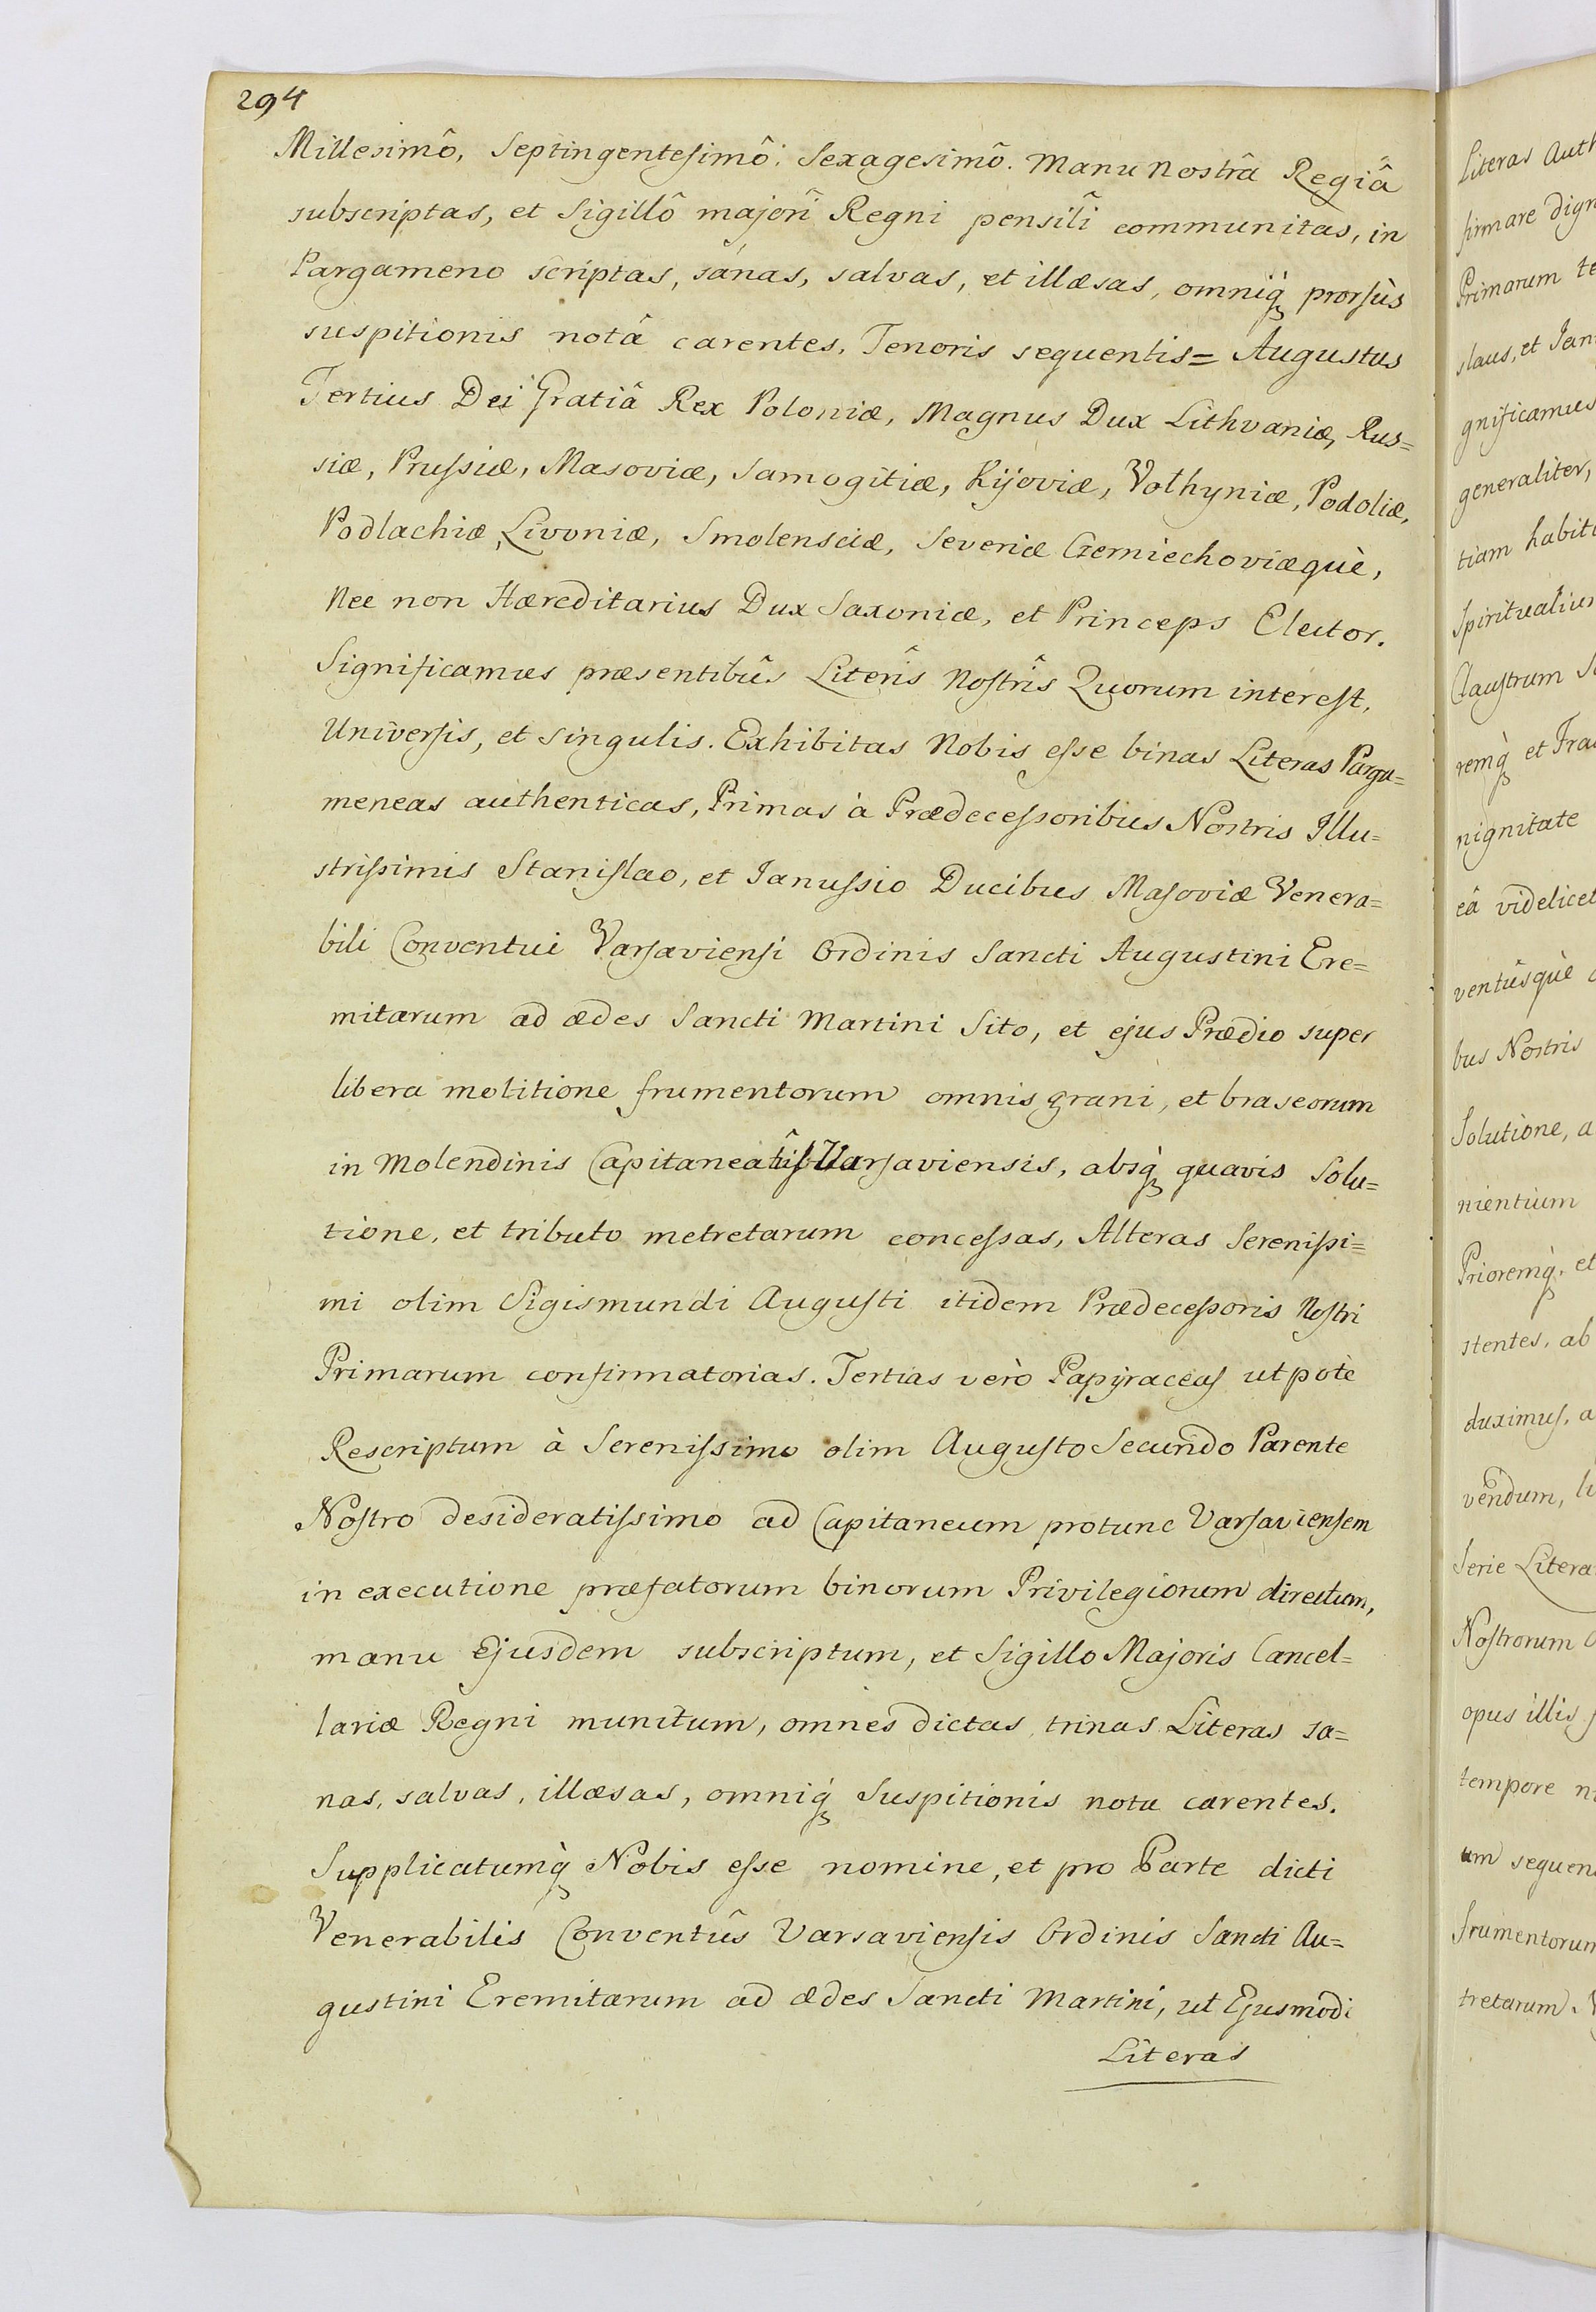 294
Millesimô, Septingentesimô. Sexagesimô. Manu nostrâ Regiâ
subscriptas, et Sigillô majorî Regni pensilî communitas, in
Pargameno scriptas, sanas, salvas, et illæsas, omniq̀ʒ prorsùs
suspitionis notâ carentes, Tenoris sequentis= Augustus
Tertius Dei Gratiâ Rex Poloniæ, Magnus Dux Lithvaniæ, Rus=
siæ, Prussiæ, Masoviæ, Samogitiæ, Kijoviæ, Volhyniæ, Podoliæ,
Podlachiæ, Livoniæ, Smolensciæ, Severiæ Czerniechoviæquè,
Nec non Hæreditarius Dux Saxoniæ, et Princeps Elector.
Significamus præsentibûs Literîs Nostrîs Quorum interest,
Universis, et singulis. Exhibitas Nobis esse binas Literas Parga=
meneas authenticas, Primas à Prædecessoribus Nostris Illu=
strissimis Stanislao, et Janussio Ducibus Masoviæ Venera=
bili Conventui Varsaviensi Ordinis Sancti Augustini Ere=
mitarum ad ædes Sancti Martini Sito, et ejus Prædio super
libera molitione frumentorum omnis grani, et braseorum
in Molendinis Capitaneatûs Varsaviensis, absq̀ʒ quavis Solu=
tione, et tributo metretarum concessas, Alteras Serenissi=
mi olim Sigismundi Augusti itidem Prædecessoris Nostri
Primarum confirmatorias. Tertias verò Papÿraceas utpotè
Rescriptum à Serenissimo olim Augusto Secundo Parente
Nostro desideratissimo ad Capitaneum protunc Varsaviensem
in executione præfatorum binorum Privilegiorum directum,
manu Ejusdem subscriptum, et Sigillo Majoris Cancel=
lariæ Regni munitum, omnes dictas trinas Literas sa=
nas, salvas, illæsas, omniq̀ʒ Suspitionis nota carentes.
Supplicatumq̀ʒ Nobis esse nomine, et pro Parte dicti
Venerabilis Conventûs Varsaviensis Ordinis Sancti Au=
gustini Eremitarum ad ædes Sancti Martini, ut Ejusmodi
Literas
Literas Auth
firmare dign
Primarum te
slaus, et Jan
gnificamus
generaliter,
tiam habit
Spiritualiu
Claustrum S
remq̀ʒ et Fra
nignitate
eâ videlicet
ventûsquè
bus Nostris
Solutione, a
nientium
Prioremq̀ʒ, et
stentes, ab
duximus, a
vendum, li
Serie Litera
Nostrorum
opus illis
tempore n
um sequen
frumentorum
tretarum.